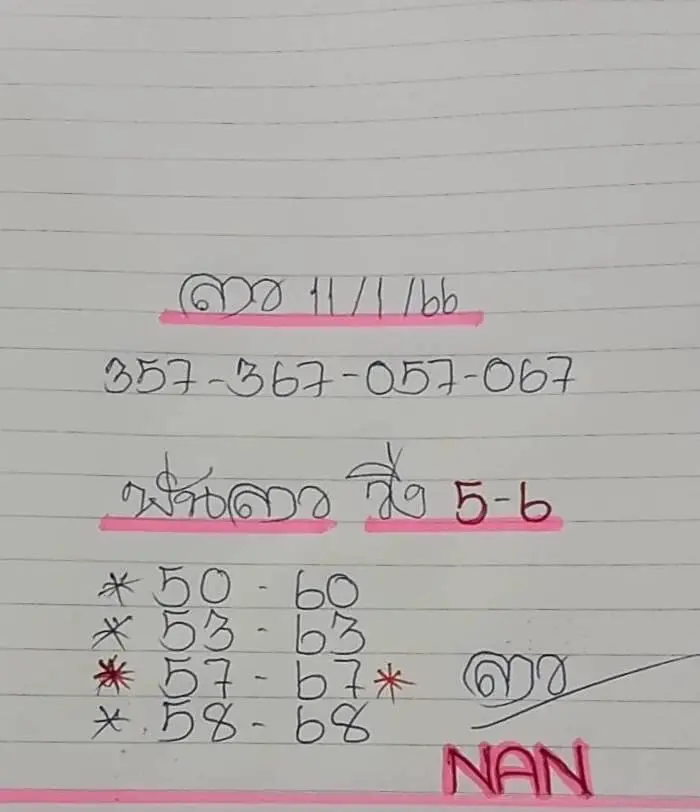 ลาว 11/1/66
357-367-057-067
ฟันลาว วิ่ง 5-6
* 50 - 60
* 53 - 63
* 57 - 67 *
* 58 - 68
ลาว
NAN